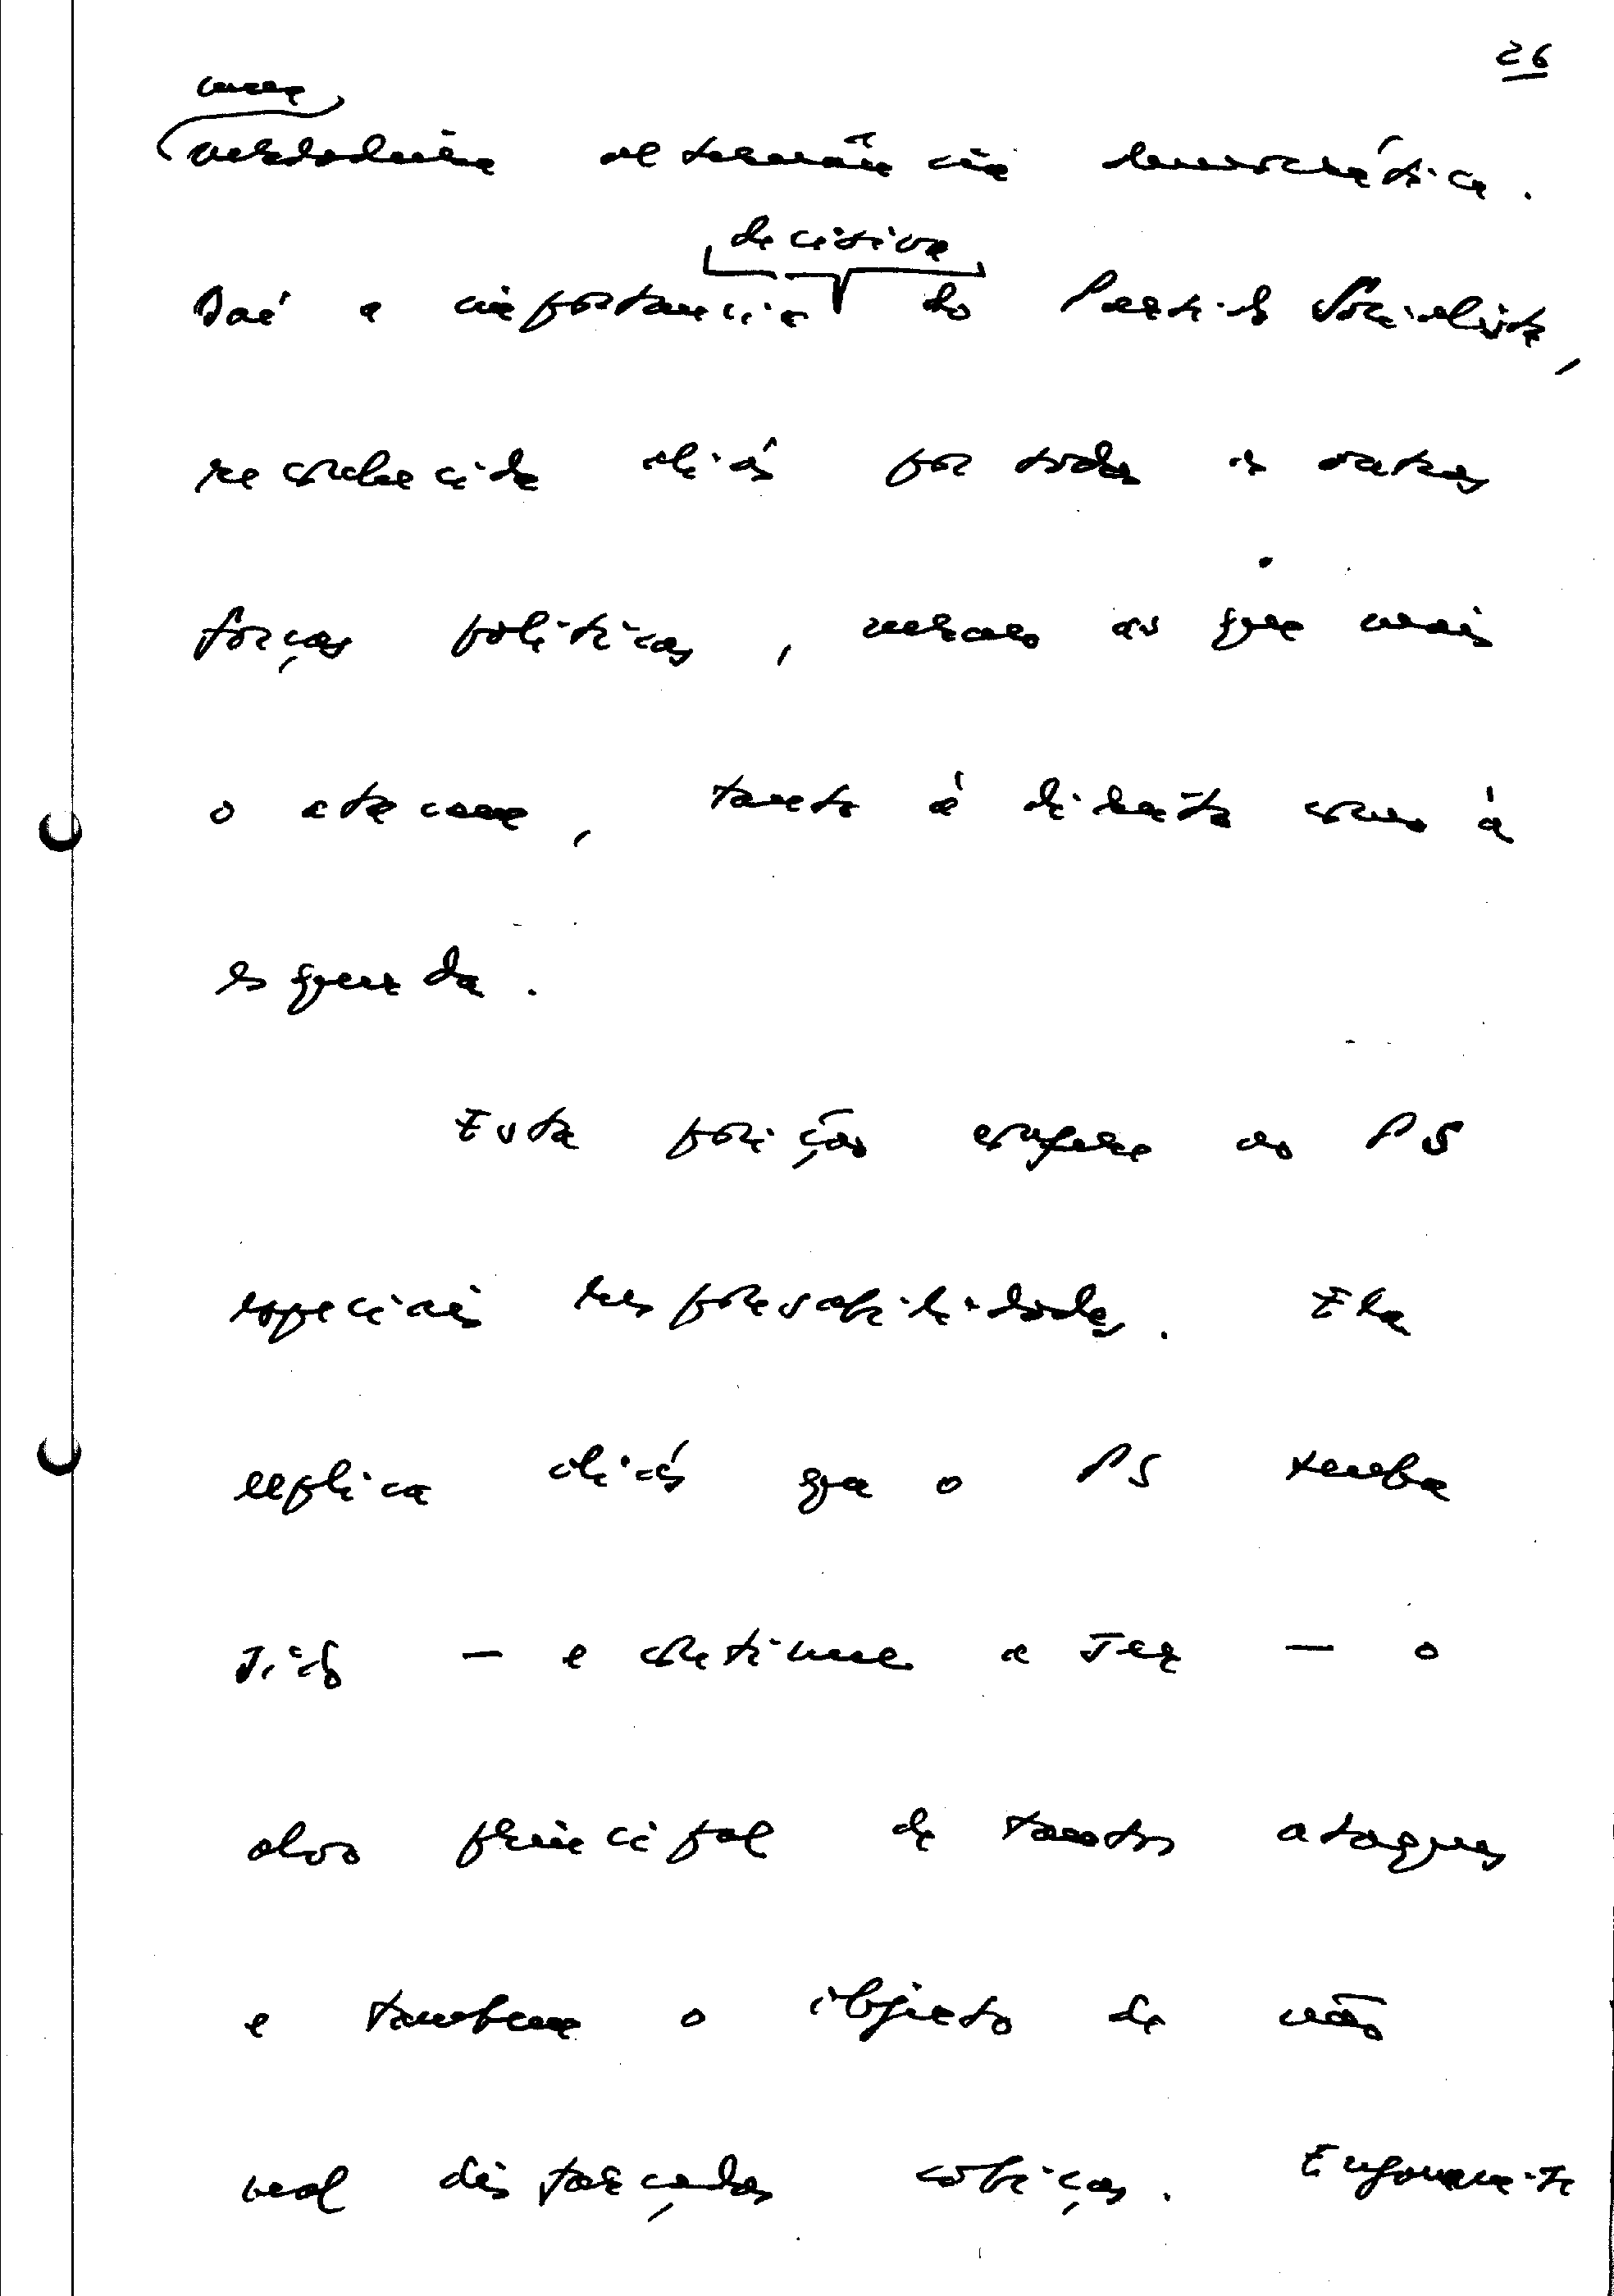 26
uma
verdadeira alternância democrática.
decisiva
Daí a importancia do Partido Socialista,
reconhecida aliás por todas as outras
forças políticas, mesmo as que mais
o atacam, tanto à direita como à
esquerda.
Esta posição confere ao PS
especiais responsabilidades. Ela
explica aliás que o PS tenha
sido - e continue a ser - o
alvo principal de tantos ataques
e também o objecto de não
mal disfarçadas cobiças.